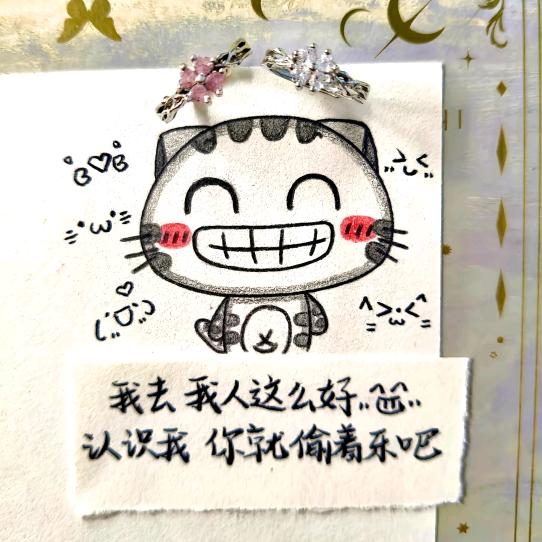 我去 我人这么好
认识我 你就偷着乐吧